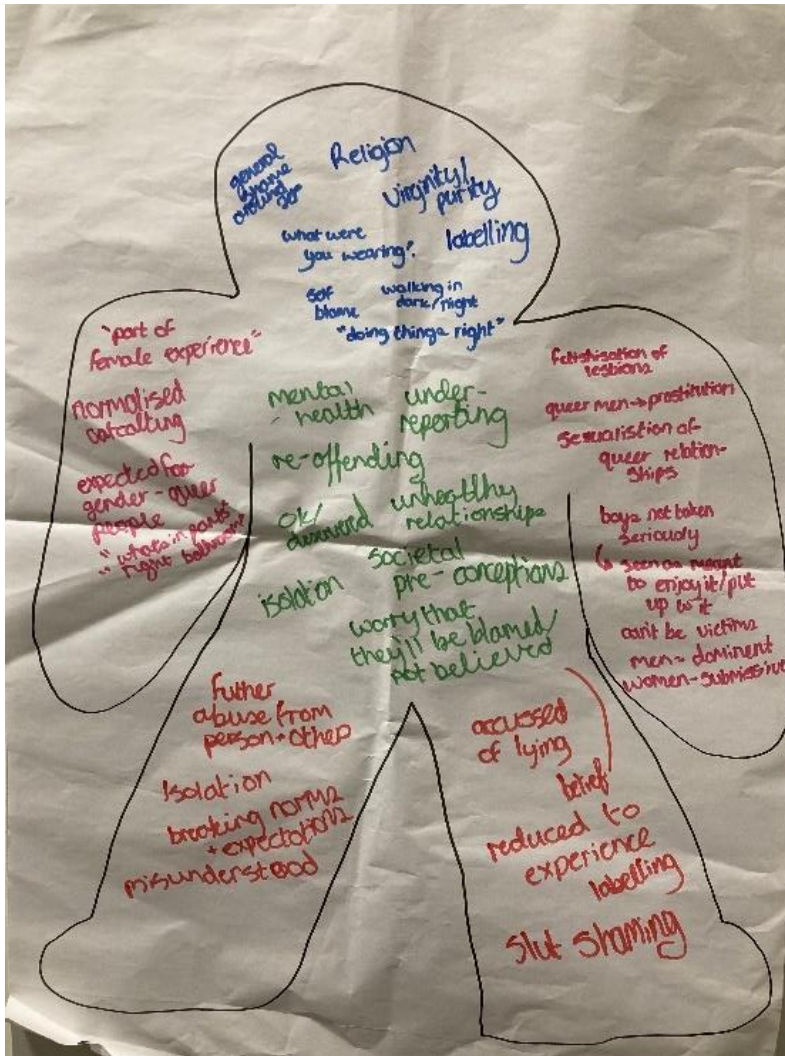 general
shame
around
sex
Religion
Virginity/
purity
what were
you wearing?
labelling
self
blame
walking in
dark/night
"doing things right"
"part of
female experience"
normalised
catcalling
expected for
gender-queer
people
"whats in pants"
"right bathroom"
mental
health
under-
reporting
re-offending
ok/
unhealthy
relationships
isolation
societal
pre-conceptions
worry that
they'll be blamed/
not believed
fetishisation of
lesbians
queer men → prostitution
sexualistion of
queer relation-
ships
boys not taken
seriously
↳ seen as meant
to enjoy it/put
up w it
can't be victims
men = dominent
women - submissive
futher
abuse from
person + others
Isolation
breaking norms
+ expectations
misunderstood
accussed
of lying
belief
reduced to
experience
labelling
slut shaming